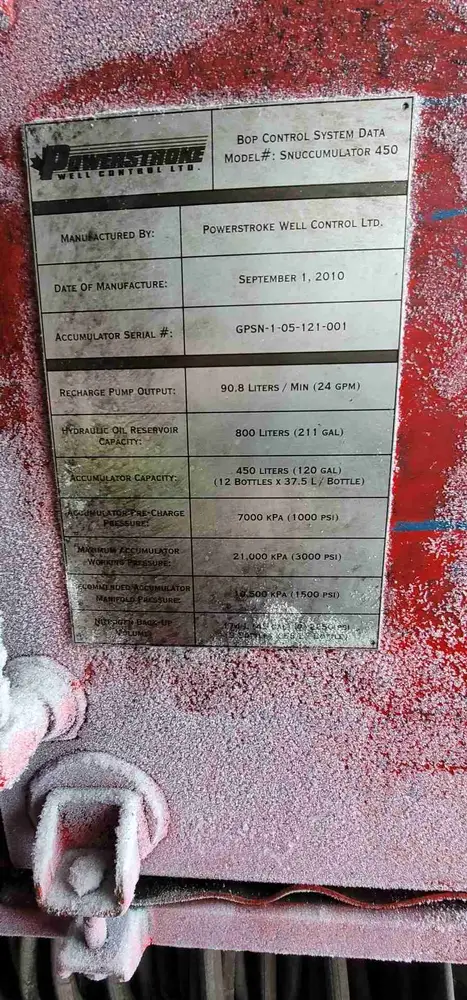 POWERSTROKE
WELL CONTROL LTD.
BOP CONTROL SYSTEM DATA
MODEL#: SNUCCUMULATOR 450
MANUFACTURED BY: POWERSTROKE WELL CONTROL LTD.
DATE OF MANUFACTURE: SEPTEMBER 1, 2010
ACCUMULATOR SERIAL #: GPSN-1-05-121-001
RECHARGE PUMP OUTPUT: 90.8 LITERS / MIN (24 GPM)
HYDRAULIC OIL RESERVOIR
CAPACITY:
800 LITERS (211 GAL)
ACCUMULATOR CAPACITY:
450 LITERS (120 GAL)
(12 BOTTLES X 37.5 L / BOTTLE)
ACCUMULATOR PRE-CHARGE
PRESSURE:
7000 KPA (1000 PSI)
MAXIMUM ACCUMULATOR
WORKING PRESSURE:
21,000 KPA (3000 PSI)
RECOMMENDED ACCUMULATOR
MANIFOLD PRESSURE:
10,500 KPA (1500 PSI)
NITROGEN BACK-UP
VOLUME: